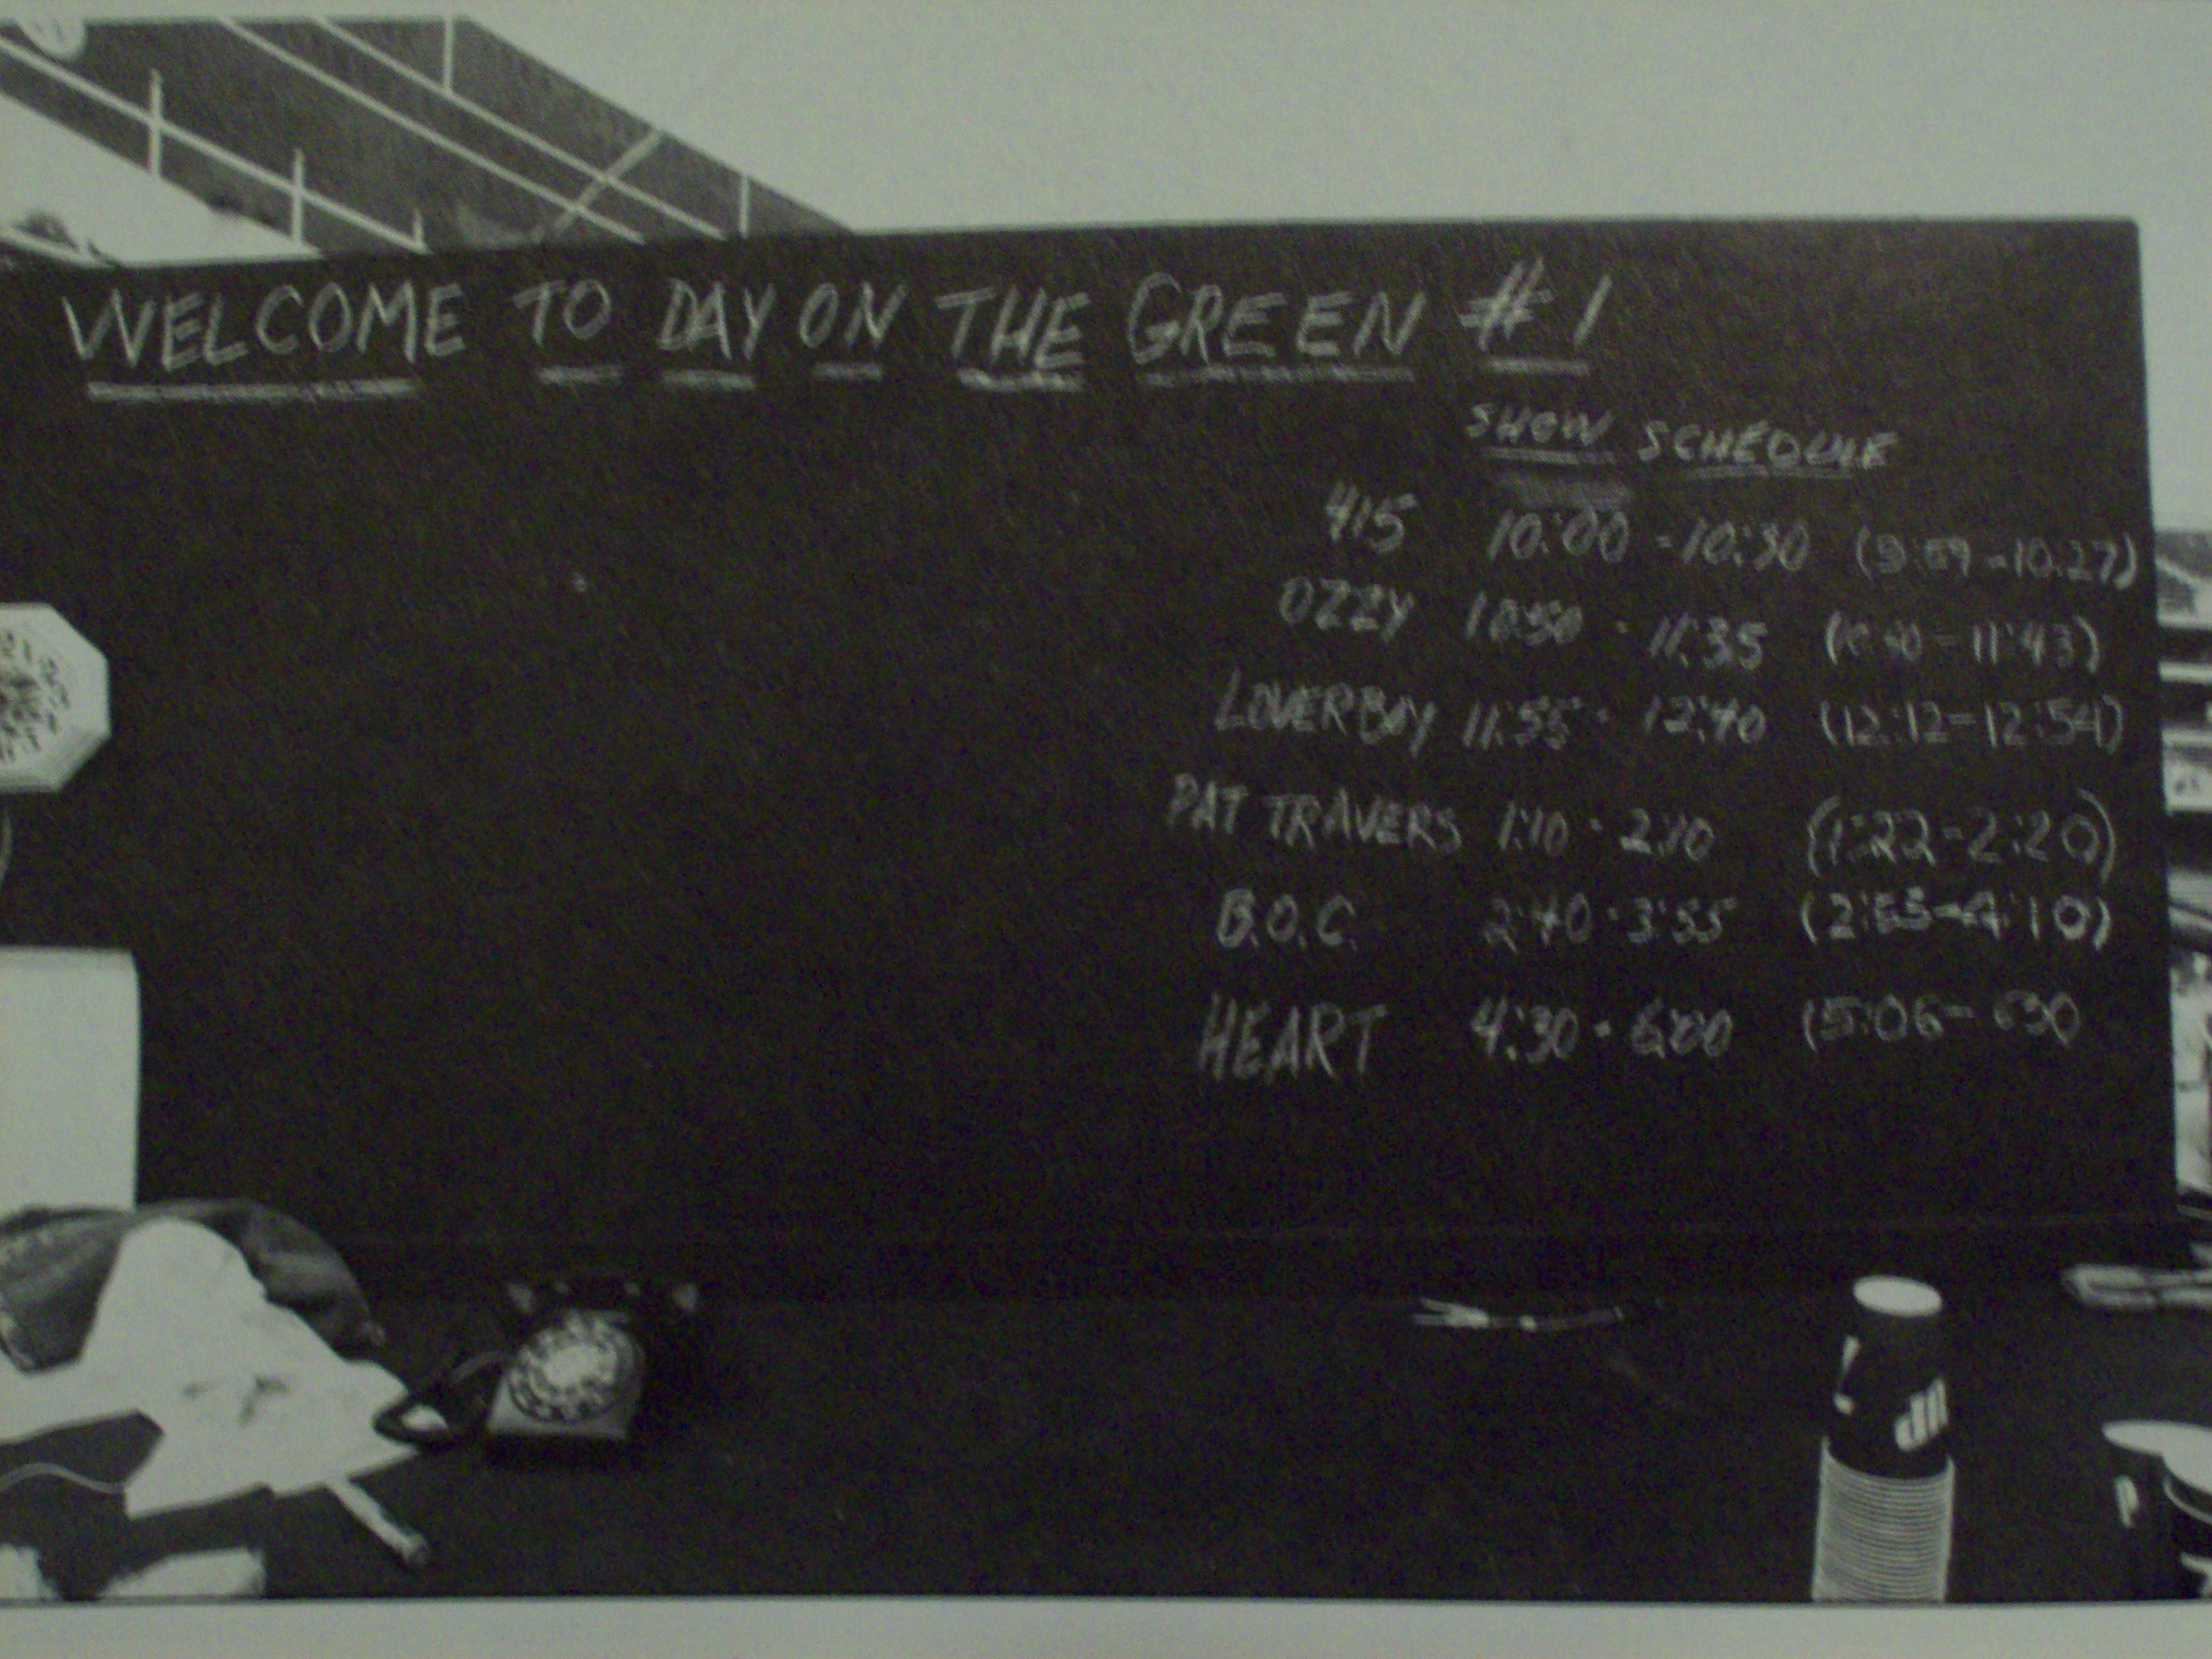 WELCOME TO DAY ON THE GREEN #1
SHOW SCHEDULE
415 10:00 - 10:30 (9:59 - 10:27)
OZZY 10:50 - 11:35 - 11:43)
LOVERBOY 11:55 - 12:40 (12:12 - 12:54)
PAT TRAVERS 1:10 - 2:10 (1:22 - 2:20)
B.O.C. 2:40 - 3:55 (2:55 - 4:10)
HEART 4:30 - 6:00 (5:06 - 630